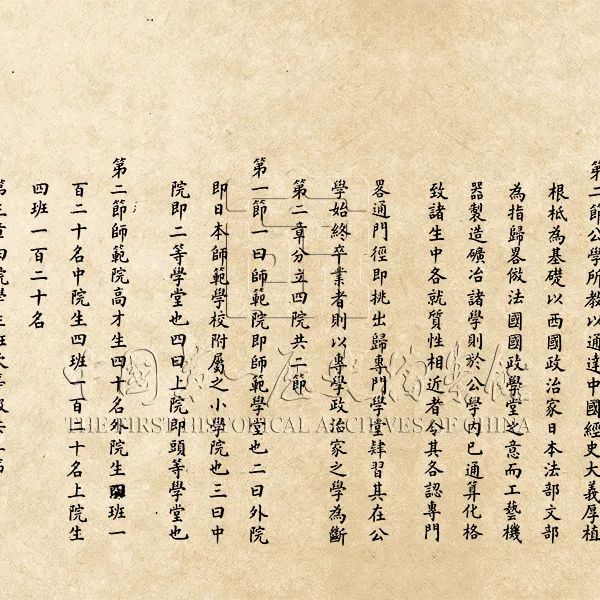 第二節公學所教以通達中國經史大義厚植
根柢為基礎以西國政治家日本法部文部
為指歸畧倣法國國政學堂之意而工藝機
器製造礦冶諸學則於公學內已通算化格
致諸生中各就質性相近者令其各認專門
畧通門徑即挑出歸專門學堂肄習其在公
學始終卒業者則以專學政治家之學為斷
第二章分立四院共二節
第一節一曰師範院即師範學堂也二曰外院
即日本師範學校附屬之小學院也三曰中
院即二等學堂也四曰上院即頭等學堂也
第二節師範院高才生四十名外院生四班一
百二十名中院生四班一百二十名上院生
四班一百二十名
中國第一歷史檔案館
THE FIRST HISTORICAL ARCHIVES OF CHINA